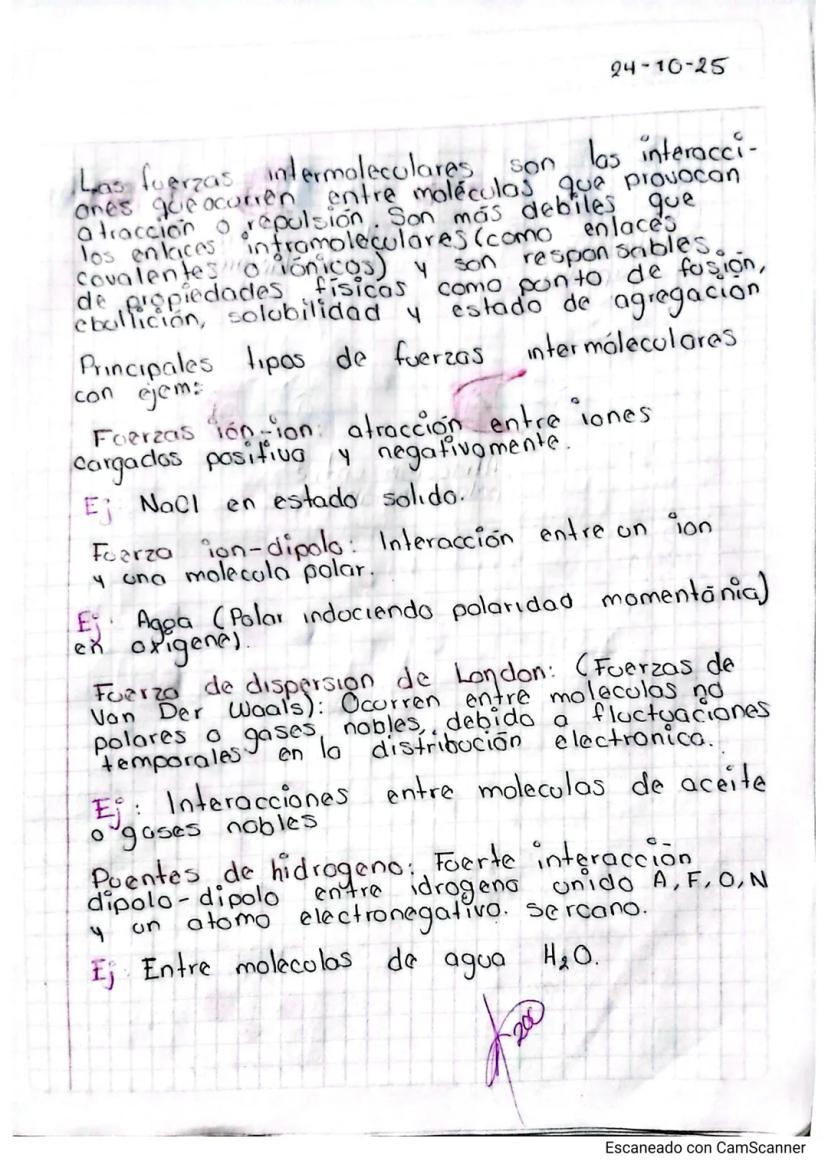 24-10-25
Las fuerzas intermoleculares son las interacci-
ones que ocurren entre moléculas que provocan
atracción o repulsión. Son más debiles que
los enlaces intramoleculares (como enlaces
covalentes o iónicos) y son responsables
de propiedades físicas como punto de fusión,
ebullición, solubilidad y estado de agregación
Principales tipos de fuerzas intermóleculares
con ejem:
Fuerzas ión-ion: atracción entre iones
cargados positiva y negativamente.
Ej: NaCl en estado solido.
Fuerza ion-dipolo: Interacción entre un ion
y una molecula polar.
Ej: Agua (Polar induciendo polaridad momentánia)
en oxigene).
Fuerza de dispersion de London: (Fuerzas de
Van Der Waals): Ocurren entre moleculas no
polares o gases nobles, debido a fluctuaciones
temporales en la distribución electronica.
Ej: Interacciones entre moleculas de aceite
o gases nobles
Puentes de hidrogeno: Fuerte interacción
dipolo-dipolo entre idrogeno unido A, F, O, N
y un atomo electronegativo. sercano.
Ej: Entre moleculas de agua H₂O.
200
Escaneado con CamScanner